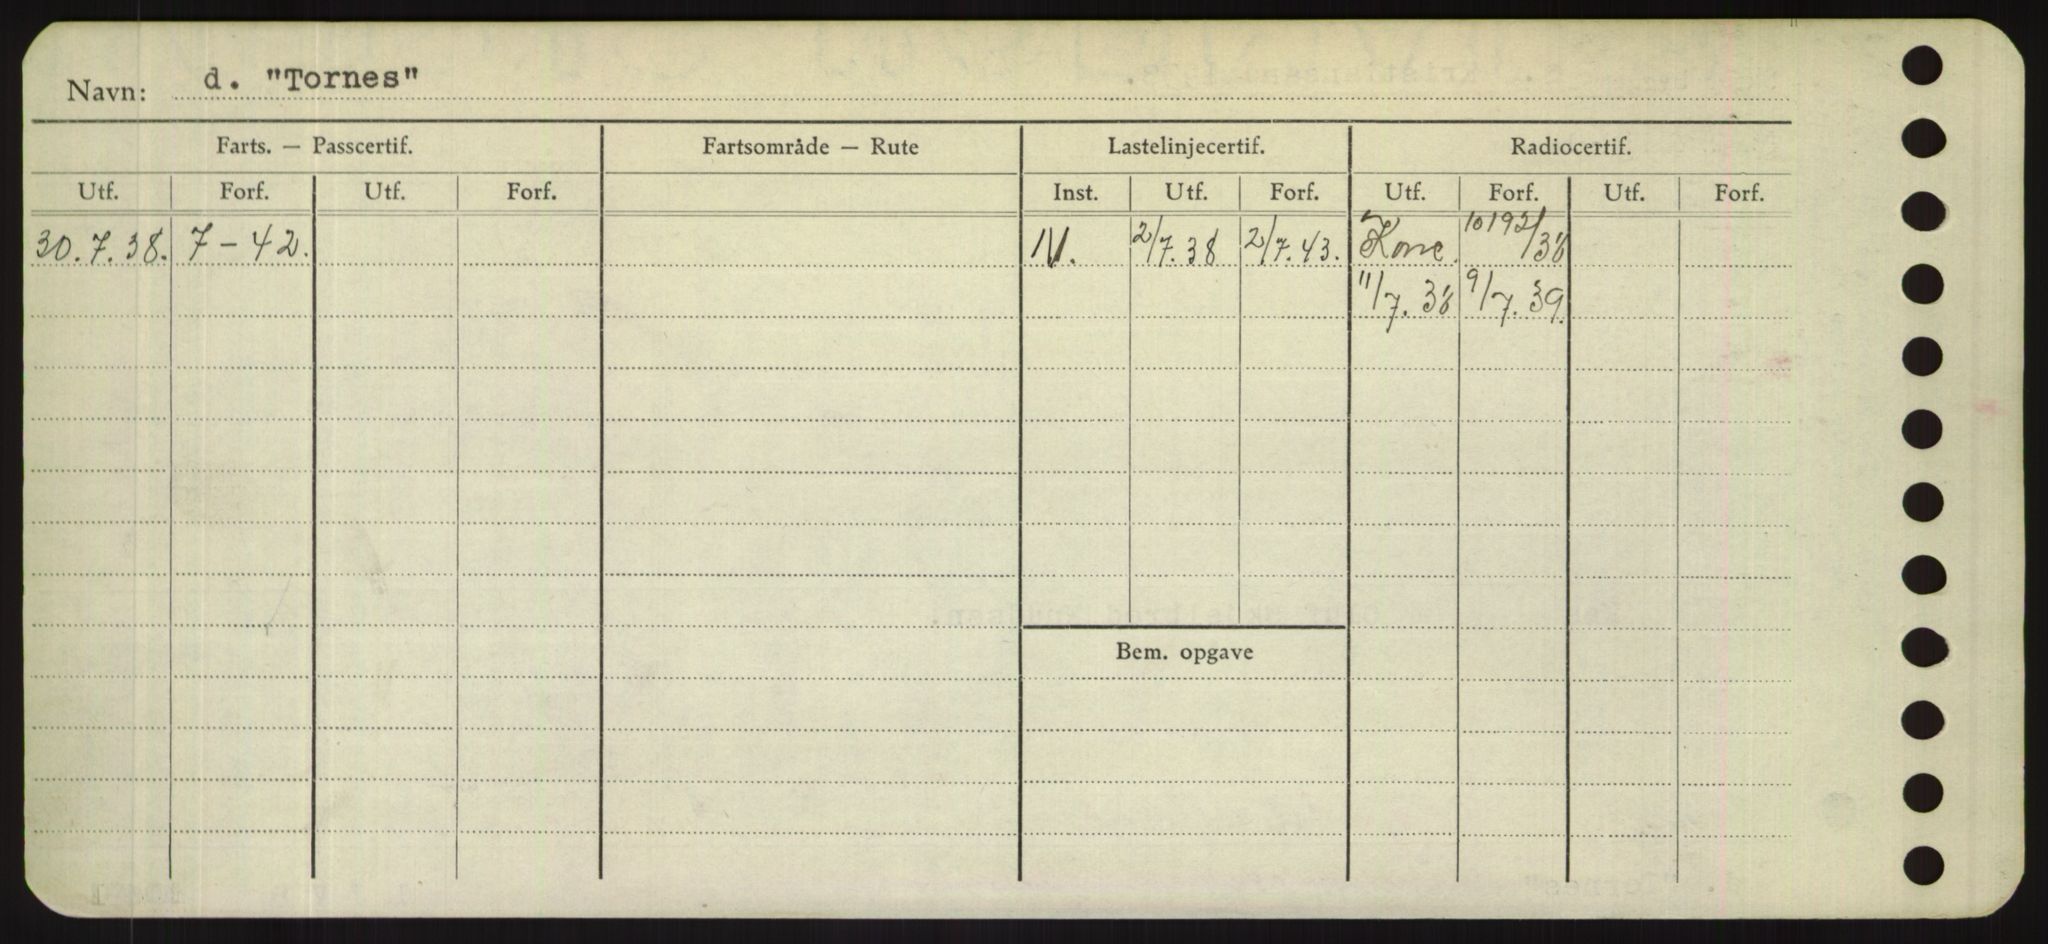 Navn: d. "Tornes"
Farts. — Passcertif. Fartsområde — Rute Lastelinjecertif. Radiocertif.
Utf. Forf. Utf. Forf. Inst. Utf. Forf. Utf. Forf. Utf. Forf.
30.7.38. 7-42. 2/7.38 2/7.43. 10192/38
11/7.38 9/7.39.
Bem. opgave